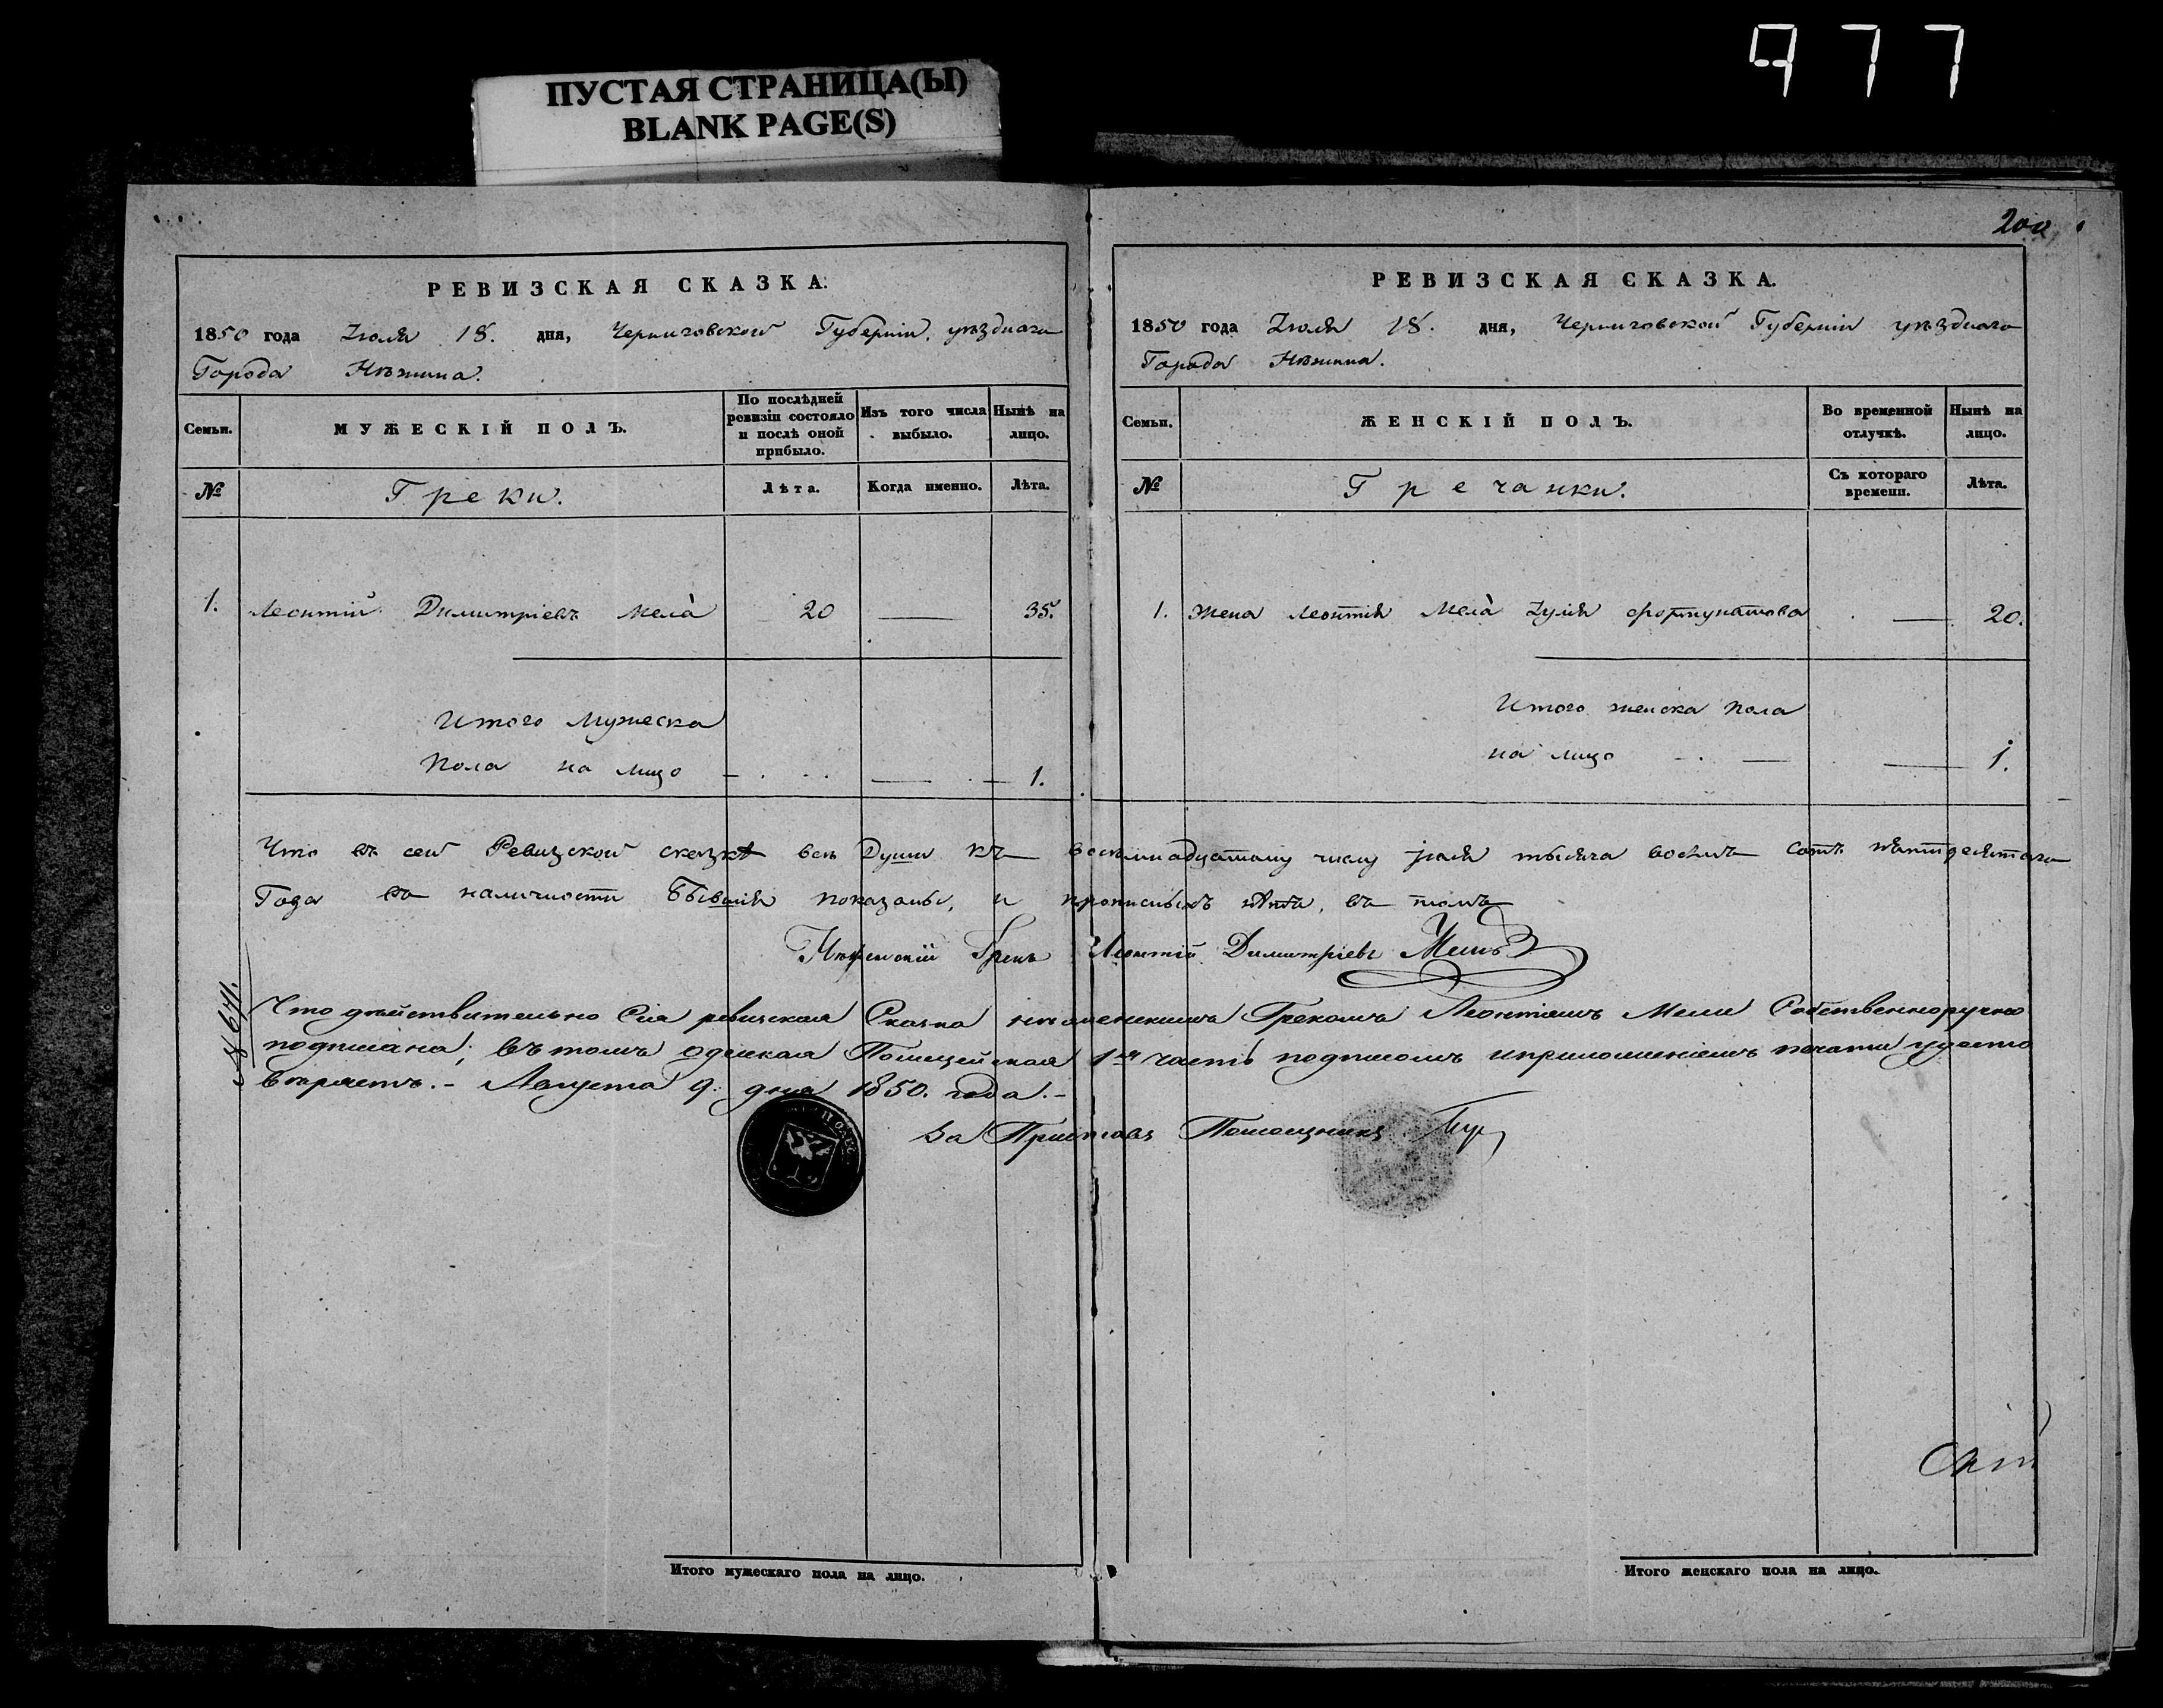 977
ПУСТАЯ СТРАНИЦА(Ы)
BLANK PAGE(S)
РЕВИЗСКАЯ СКАЗКА.
1850 года Іюля 18. дня, Черниговской Губерніи, уѣзднаго
Города Нѣжина.
Семьи.
МУЖЕСКІЙ ПОЛЪ.
По послѣдней ревизіи состояло и послѣ оной прибыло.
Изъ того числа выбыло.
Нынѣ на лицо.
№
Греки.
Лѣта.
Когда именно.
Лѣта.
1. Леонтій Димитріевъ Мела̀ 20 — 35.
Итого Мужеска
Пола на лицо — 1.
200
РЕВИЗСКАЯ СКАЗКА.
1850 года Іюля 18. дня, Черниговской Губерніи уѣзднаго
Города Нѣжина.
Семьи.
ЖЕНСКІЙ ПОЛЪ.
Во временной отлучкѣ.
Нынѣ на лицо.
№
Гречанки.
Съ котораго времени.
Лѣта.
1. Жена Леонтія Мела̀ Іулія Фортунатова — 20.
Итого женска пола
на лицо — 1.
Что въ сей Ревизской сказкѣ всѣ Души къ восемнадцатому числу Іюля тысяча восемь сотъ пятидесятаго
Года въ наличности бывшія показаны, и прописныхъ нѣтъ, въ томъ
Нѣжинскій Грекъ Леонтій Димитріевъ Мела
№ 671.
Что дѣйствительно Сія ревизская Сказка Грекомъ Леонтіемъ Мела Собственноручно
подписана, въ томъ Полицейская 1ая часть подписомъ и приложеніемъ печати удосто
вѣряетъ. – Августа 9. дня 1850. года. –
За Пристава Помощникъ
Итого мужескаго пола на лицо.
Итого женскаго пола на лицо.